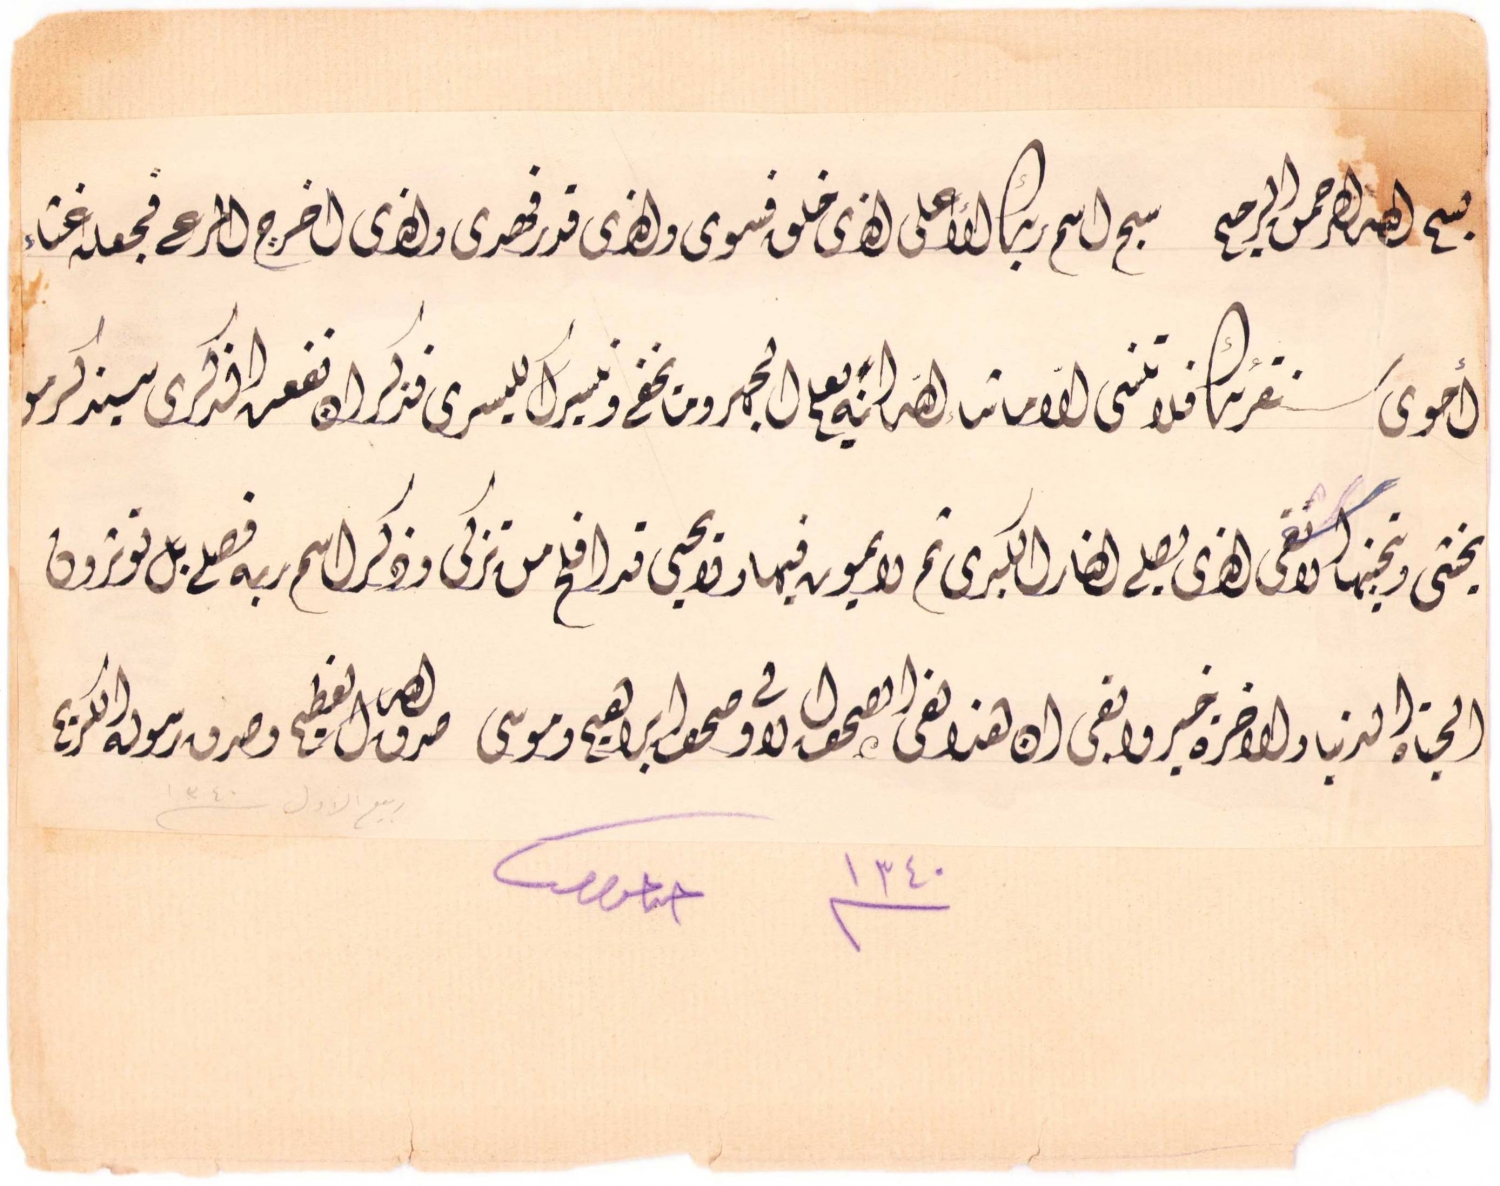 بسم الله الرحمن الرحيم سبح اسم ربك الأعلى الذى خلق فسوى والذى قدر فهدى والذى اخرج المرعى فجعله غثاء
أحوى سنقرئك فلا تنسى الا ما شاء الله انه يعلم الجهر وما يخفى ونيسرك لليسرى فذكر ان نفعت الذكرى سيذكر من
يخشى ويتجنبها الاشقى الذى يصلى النار الكبرى ثم لا يموت فيها ولا يحيى قد افلح من تزكى وذكر اسم ربه فصلى بل تؤثرون
الحياة الدنيا والاخرة خير وابقى ان هذا لفى الصحف الاولى صحف ابراهيم وموسى صدق الله العظيم وصدق رسوله الكريم
ربيع الاول ١٣٤٠
١٣٤٠